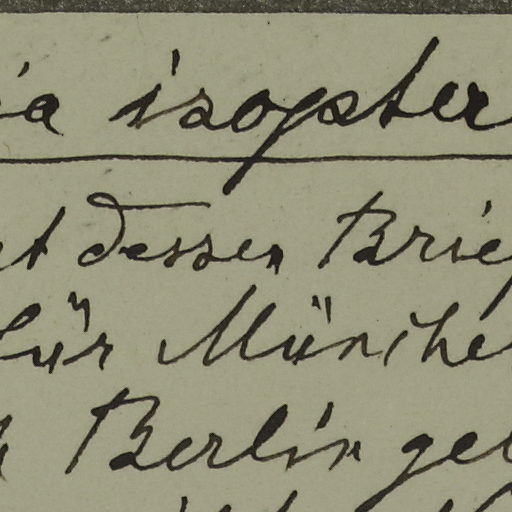 ia isopter
et dessen Brief
für München
Berlin gel